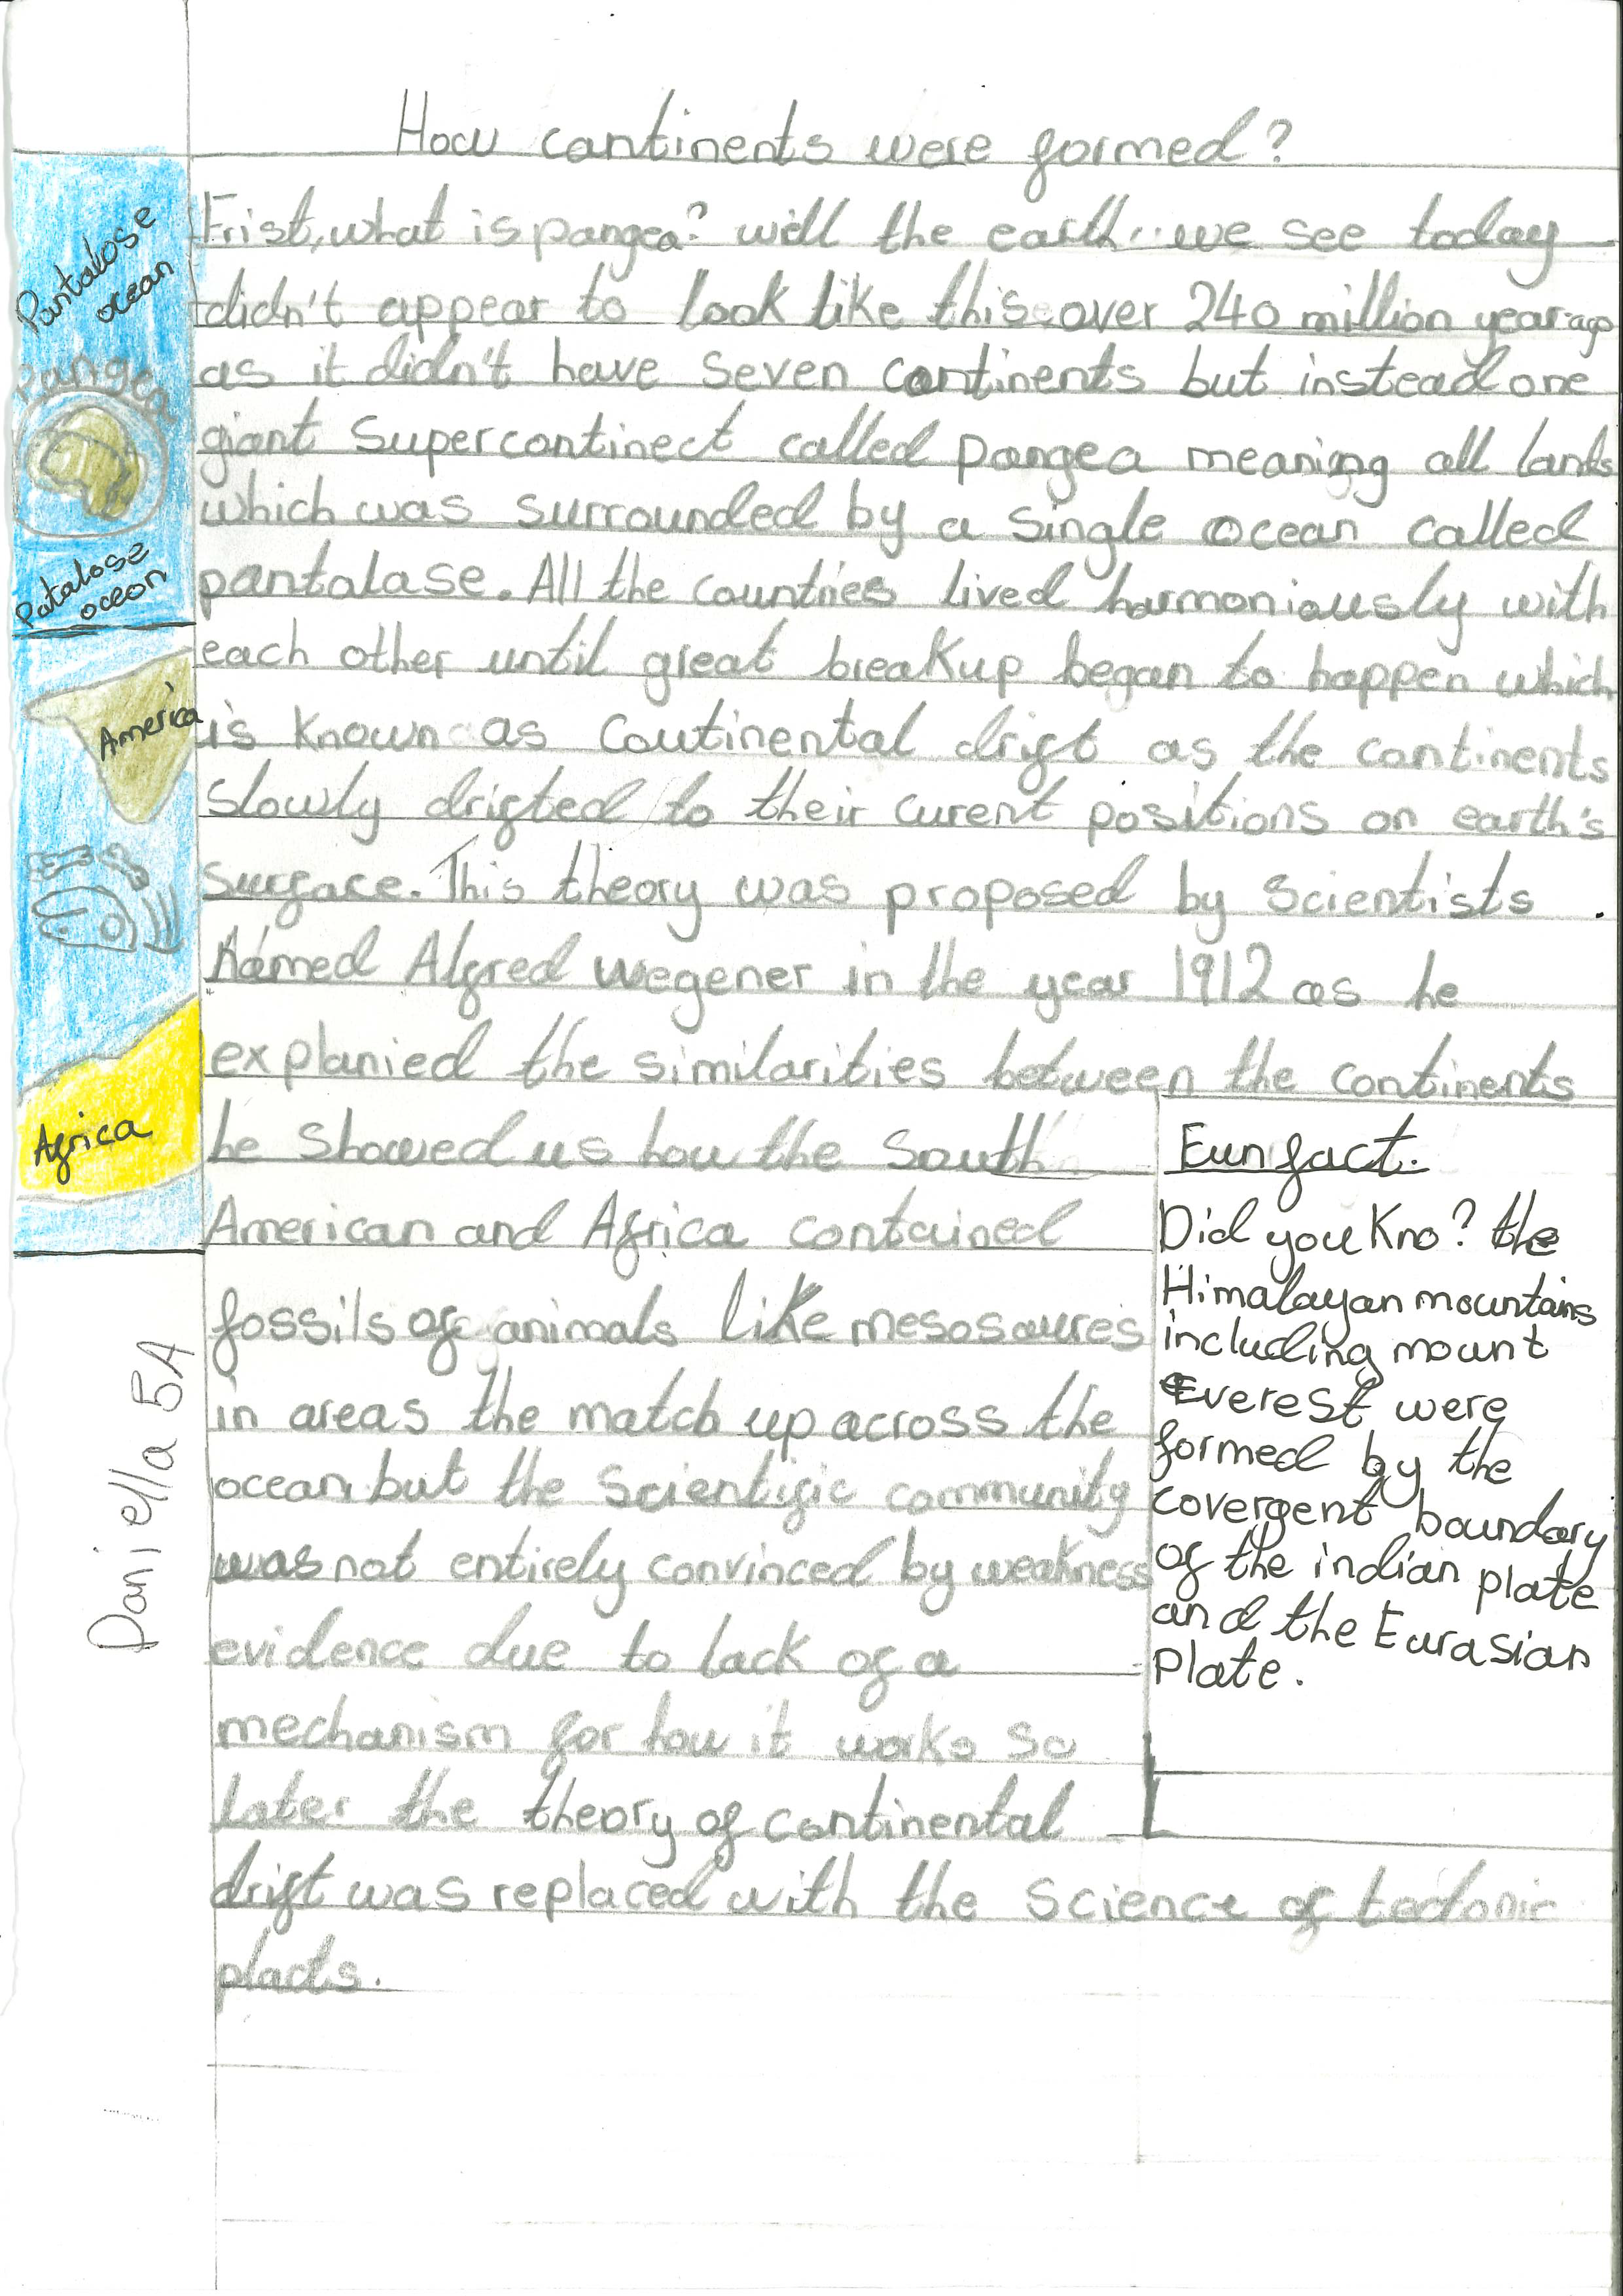 How continents were formed?
Frist, what is pangea? well the earth we see today
didn't appear to look like this over 240 million year ago
as it didn't have seven continents but instead one
giant supercontinect called pangea meaning all lands
which was surrounded by a single ocean called
pantalase. All the countries lived harmoniously with
each other until great breakup began to happen which
is known as Coutinental drift as the continents
slowly drifted to their curent positions on earth's
surface. This theory was proposed by scientists
Named Alfred wegener in the year 1912 as he
explanied the similarities between the continents
he showed us how the South
American and Africa contained
fossils of animals like mesosaures
in areas the match up across the
ocean but the scientific community
was not entirely convinced by weakness
evidence due to lack of a
mechanism for how it works so
later the theory of continental
drift was replaced with the science of tectonic
placts.
Eun fact.
Did you Kno? the
Himalayan mountains
including mount
Everest were
formed by the
covergent boundary
of the indian plate
and the Eurasian
Plate.
Pantalose
ocean
Pangea
Patalose
ocean
America
Africa
Daniella 5A